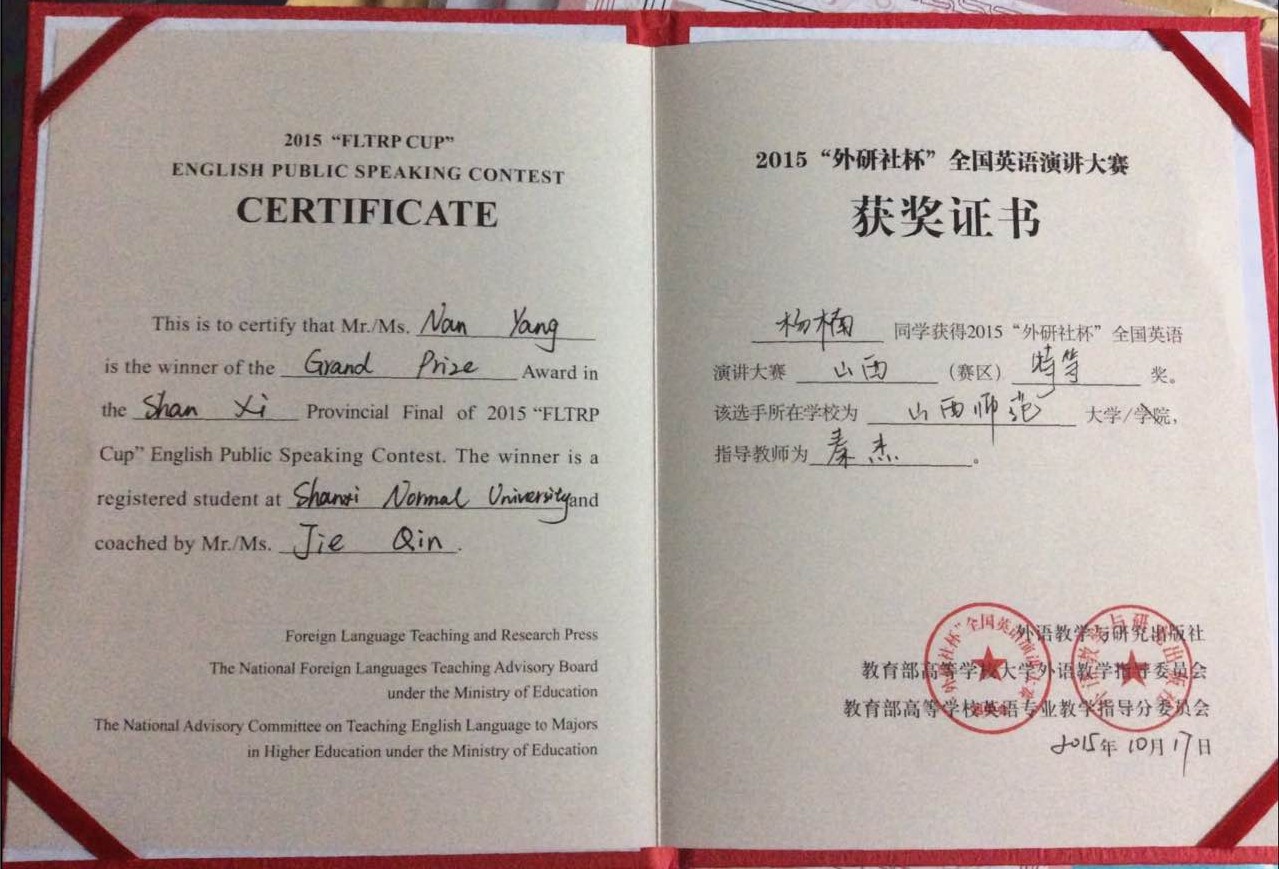 2015 “FLTRP CUP”
ENGLISH PUBLIC SPEAKING CONTEST
CERTIFICATE
This is to certify that Mr./Ms. Nan Yang
is the winner of the Grand Prize Award in
the Shan Xi Provincial Final of 2015 “FLTRP
Cup” English Public Speaking Contest. The winner is a
registered student at Shanxi Normal University and
coached by Mr./Ms. Jie Qin.
Foreign Language Teaching and Research Press
The National Foreign Languages Teaching Advisory Board
under the Ministry of Education
The National Advisory Committee on Teaching English Language to Majors
in Higher Education under the Ministry of Education
2015“外研社杯”全国英语演讲大赛
获奖证书
杨楠 同学获得2015“外研社杯”全国英语
演讲大赛 山西 (赛区) 特等 奖。
该选手所在学校为 山西师范 大学/学院,
指导教师为 秦杰 。
外语教学与研究出版社
教育部高等学校大学外语教学指导委员会
教育部高等学校英语专业教学指导分委员会
2015年10月17日